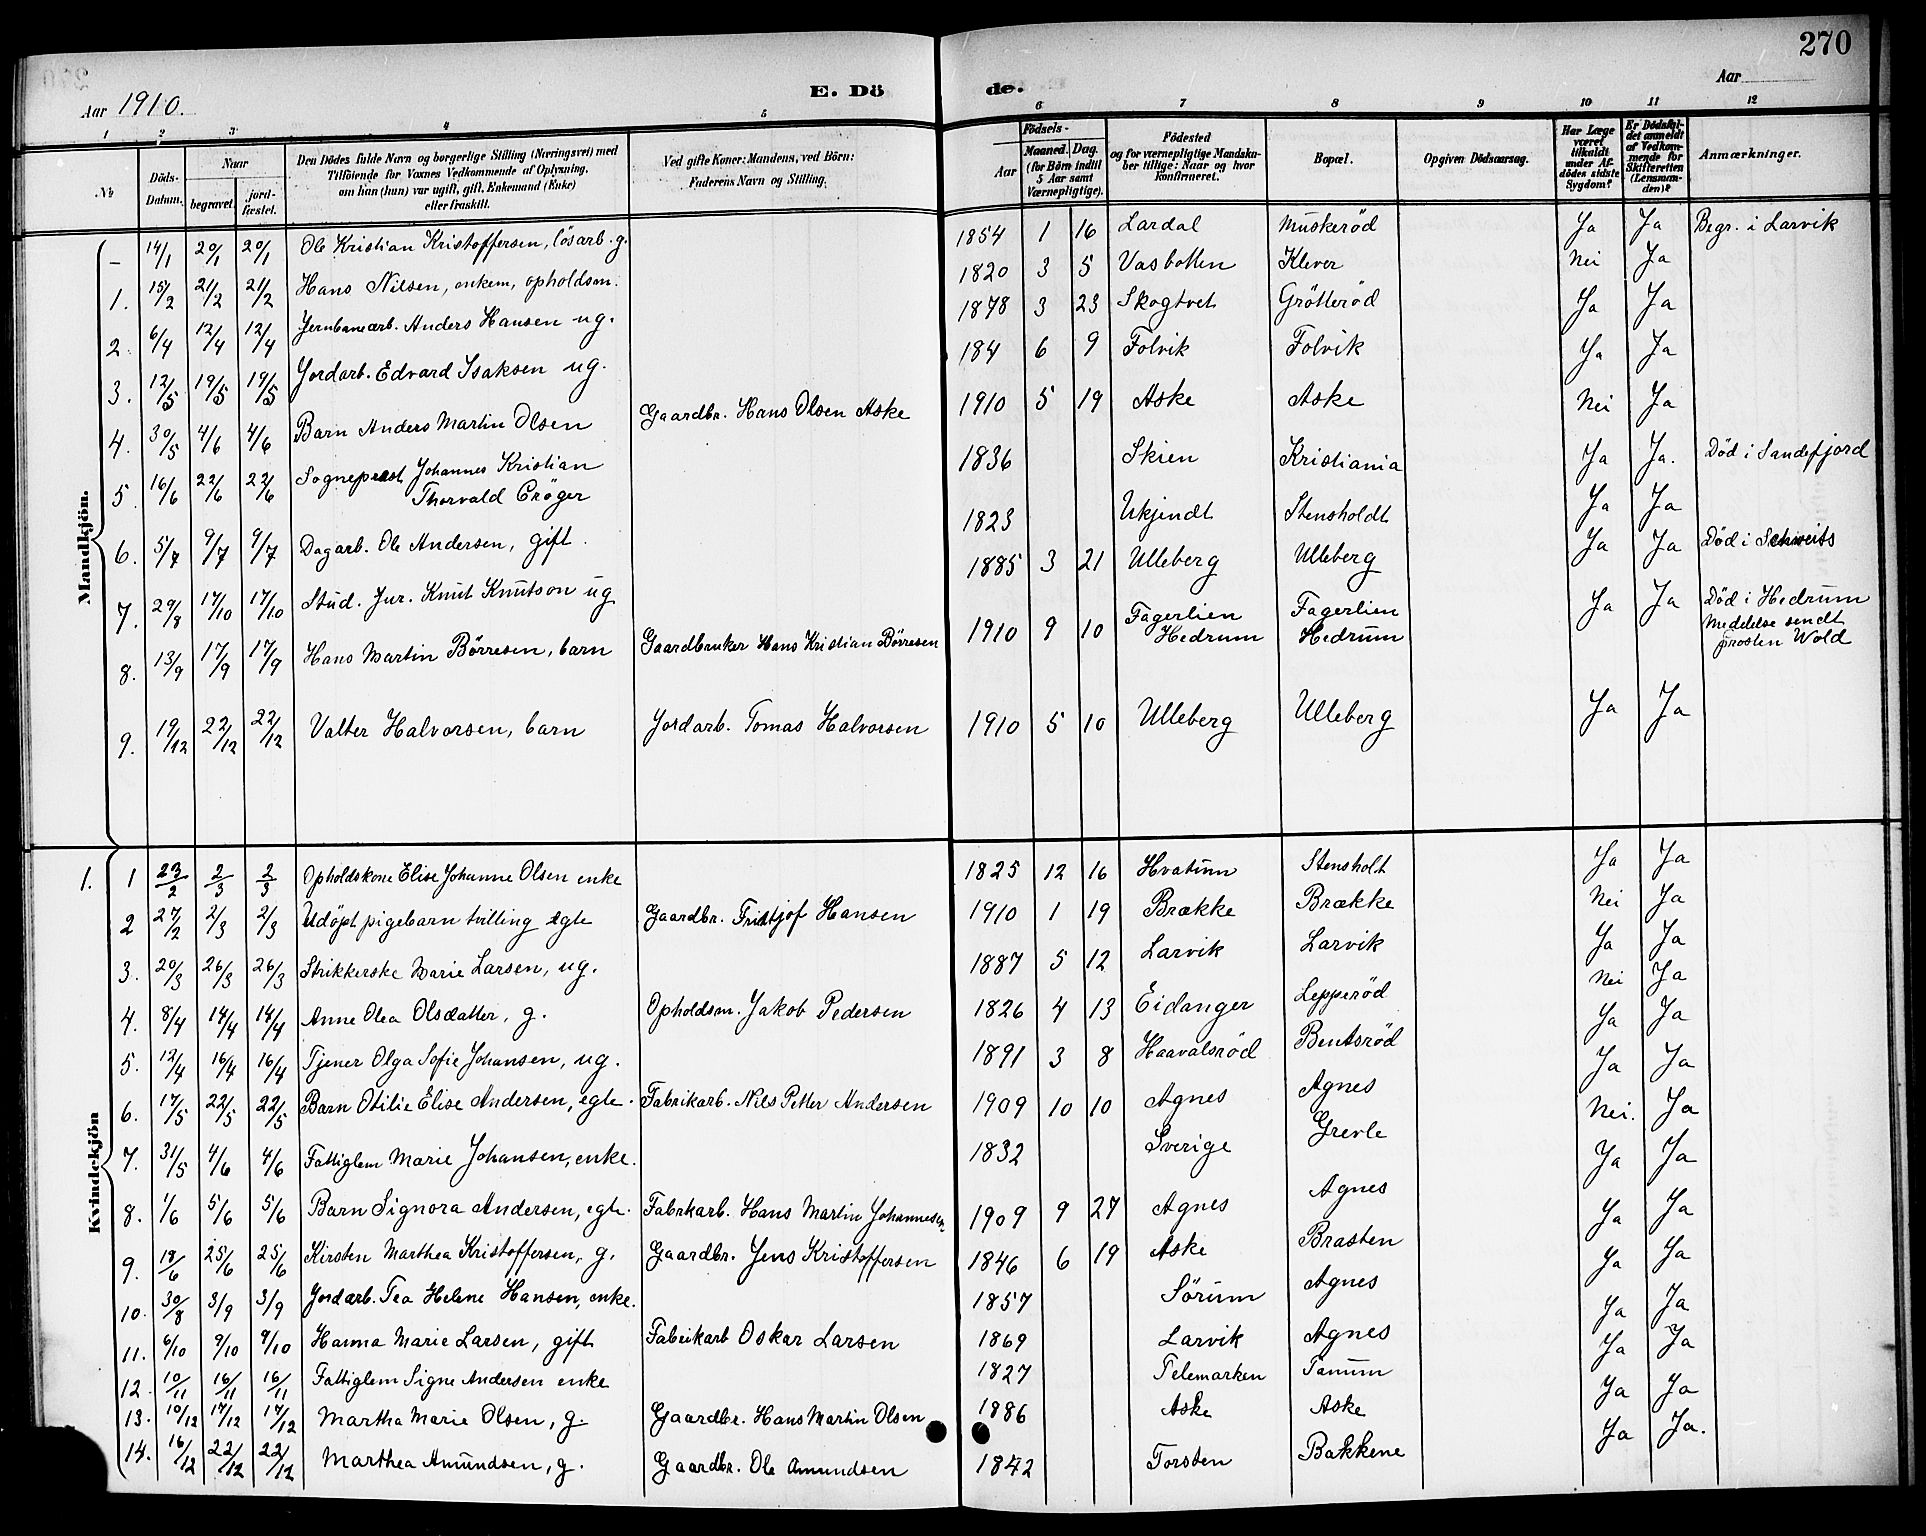 270
Aar 1910.
E. Dö de.
Aar
1 2 3 4 5 6 7 8 9 10 11 12
№
Döds-Datum.
Naar
begravet.
jord-fæstet.
Den Dödes fulde Navn og borgerlige Stilling (Næringsvei) med
Tilföiende for Voxnes Vedkommende af Oplysning,
om han (hun) var ugift, gift, Enkemand (Enke)
eller fraskilt.
Ved gifte Koner: Mandens, ved Börn:
Faderens Navn og Stilling.
Aar
Födsels-
Maaned. Dag.
(for Börn indtil
5 Aar samt
Værnepligtige).
Födested
og for værnepligtige Mandska-
ber tillige: Naar og hvor
konfirmeret.
Bopæl.
Opgiven Dödsaarsag.
Har Læge
været
tilkaldt
under Af-
dödes sidste
Sygdom?
Er Dödsfal-
det anmeldt
af Vedkom-
mende for
Skifteretten
(Lensman-
den)?
Anmærkninger.
Mandkjön.
– 14/1 20/1 20/1 Ole Kristian Kristoffersen, lösarb. g. 1854 1 16 Lardal Muskeröd Ja Ja Begr. i Larvik
1. 15/2 21/2 21/2 Hans Nilsen, enkem, opholdsm. 1820 3 5 Vasbotten Klever Nei Ja
2. 6/4 12/4 12/4 Jernbanearb. Anders Hansen ug. 1878 3 23 Skogtvet Grötteröd Ja Ja
3. 12/5 19/5 19/5 Jordarb. Edvard Isaksen ug. 184 6 9 Folvik Folvik Ja Ja
4. 30/5 4/6 4/6 Barn Anders Martin Olsen Gaardbr. Hans Olsen Aske 1910 5 19 Aske Aske Nei Ja
5 16/6 22/6 22/6 Sogneprest Johannes Kristian
Thorvald Cröger 1836 Skien Kristiania Ja Ja. Död i Sandefjord
6. 5/7 9/7 9/7 Dagarb. Ole Andersen, gift. 1823 Ukjendt Stensholdt Ja Ja
7. 29/8 17/10 17/10 Stud. Jur. Knut Knutson ug 1885 3 21 Ulleberg Ulleberg Ja Ja Död i Schweits
8. 13/9 17/9 17/9 Hans Martin Börresen, barn Gaardbruker Hans Kristian Börresen 1910 9 10 Fagerlien
Hedrum Fagerlien
Hedrum Ja Ja Död i Hedrum
Meddelse sendt
prosten Wold
9. 19/12 22/12 22/12 Valter Halvorsen, barn Jordarb. Tomas Halvorsen 1910 5 10 Ulleberg Ulleberg Ja Ja
Kvindekjön
1. 1 23/2 2/3 2/3 Opholdskone Elise Johanne Olsen enke 1825 12 16 Hvatum Stensholt Ja Ja
2 27/2 2/3 2/3 Udöpt pigebarn tvilling egte Gaardbr. Fritjof Hansen 1910 1 19 Brække Brække Nei Ja
3. 20/3 26/3 26/3 Strikkerske Marie Larsen, ug. 1887 5 12 Larvik Larvik Ja Ja
4. 8/4 14/4 14/4 Anne Olea Olsdatter, g. Opholdsm. Jakob Pedersen 1826 4 13 Eidanger Lepperöd Nei Ja
5. 12/4 16/4 16/4 Tjener Olga Sofie Johansen, ug. 1891 3 8 Haavalsröd Bentsröd Ja Ja
6. 17/5 22/5 22/5 Barn Otilie Elise Andersen, egte. Fabrikarb. Nils Petter Andersen 1909 10 10 Agnes Agnes Ja Ja
7. 31/5 4/6 4/6 Fattiglem Marie Johansen, enke. 1832 Sverige Grevle Nei. Ja
8. 1/6 5/6 5/6 Barn Signora Andersen, egte. Fabrkarb. Hans Martin Johannesen 1909 9 27 Agnes Agnes Ja Ja
9. 18/6 25/6 25/6 Kirsten Marthea Kristoffersen, g. Gaardbr. Jens Kristoffersen 1846 6 19 Aske Brasten Ja Ja
10. 30/8 3/9 3/9 Jordarb. Tea Helene Hansen, enke. 1857 Sörum Agnes Ja Ja
11. 6/10 9/10 9/10 Hanna Marie Larsen, gift Fabrikarb Oskar Larsen 1869 Larvik Agnes Ja Ja
12. 10/11 16/11 16/11 Fattiglem Signe Andersen enke 1827 Telemarken Tanum Ja Ja
13. 10/12 17/12 17/12 Martha Marie Olsen, g. Gaardbr. Hans Martin Olsen 1886 Aske Aske Ja Ja
14. 16/12 22/12 22/12 Marthea Amundsen, g. Gaardbr. Ole Amundsen 1842 Torsten Bakkene Ja Ja.